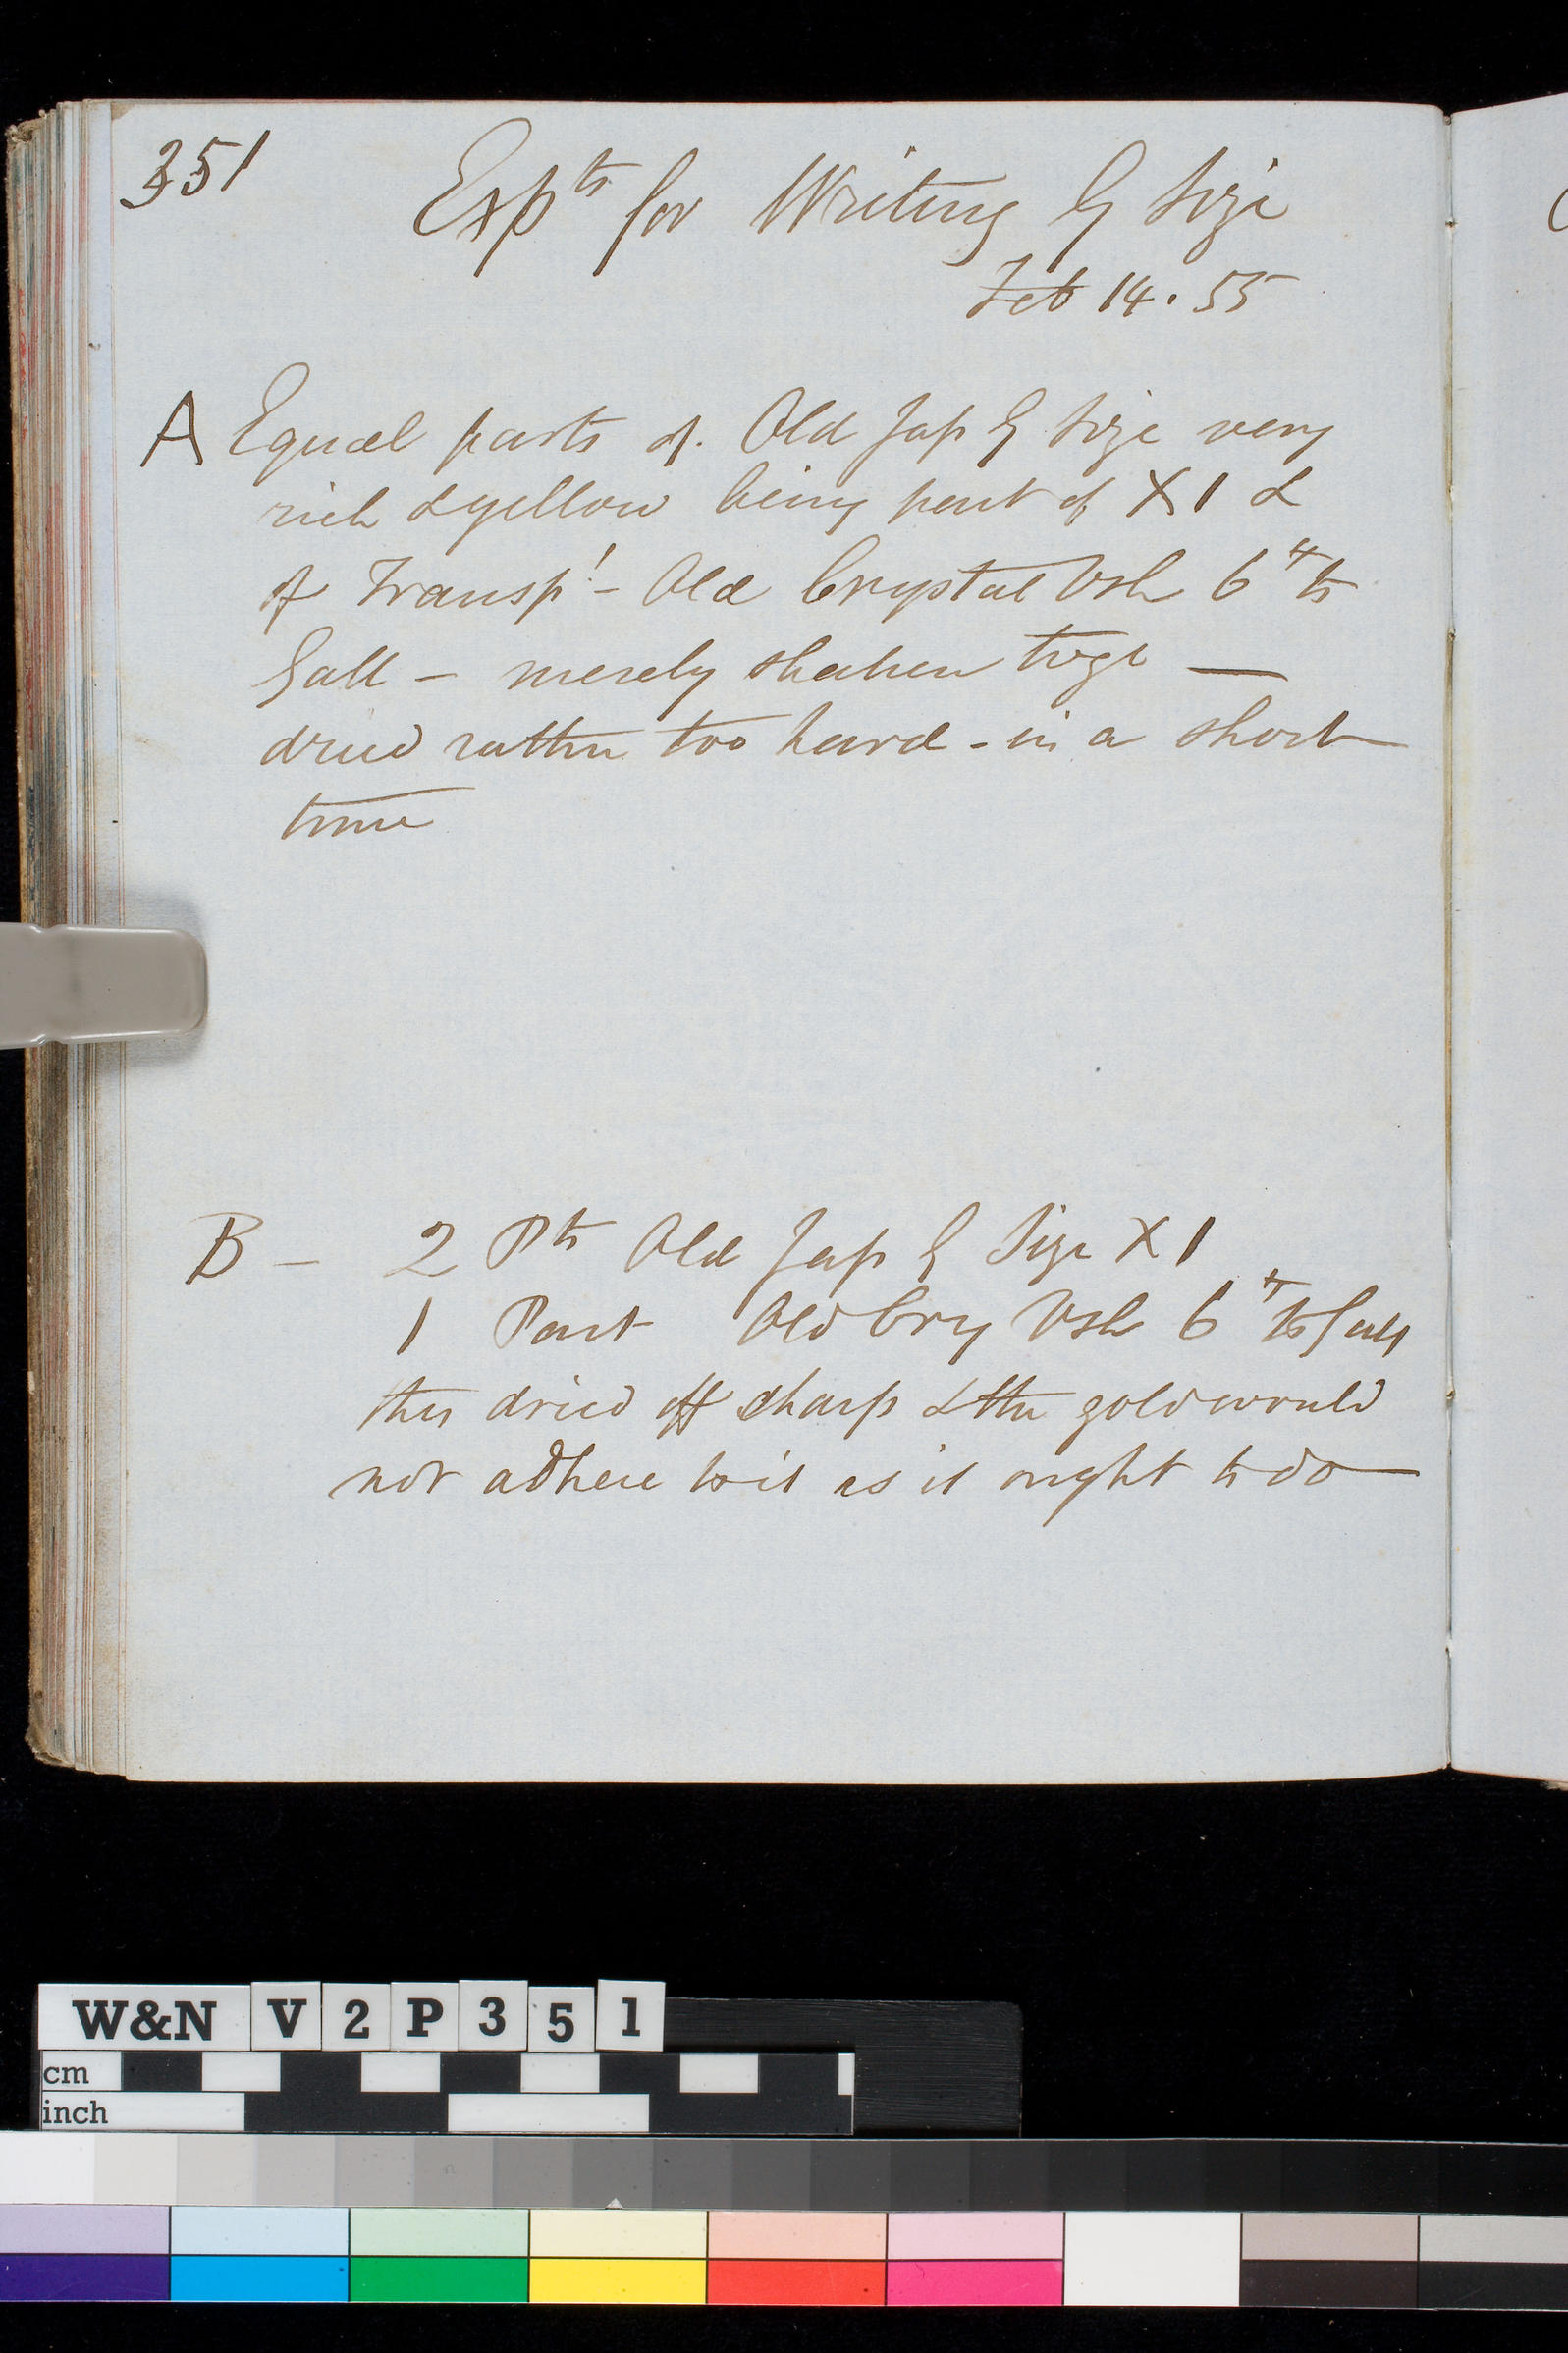 351
Expts for Writing G Size
Feb 14. 55
A Equal parts of Old Jap G Size very
rich & yellow being part of X1 &
of Transpt - Old Crystal Vsh 6 lb to
Gall - merely shaken toge —
dried rather too hard - in a short
time
B - 2 Pts Old Jap G Size X1
1 Part Old Cry Vsh 6 lb to Gall
this dried off sharp & the gold would
not adhere to it as it ought to do —
W&N V2P351
cm
inch